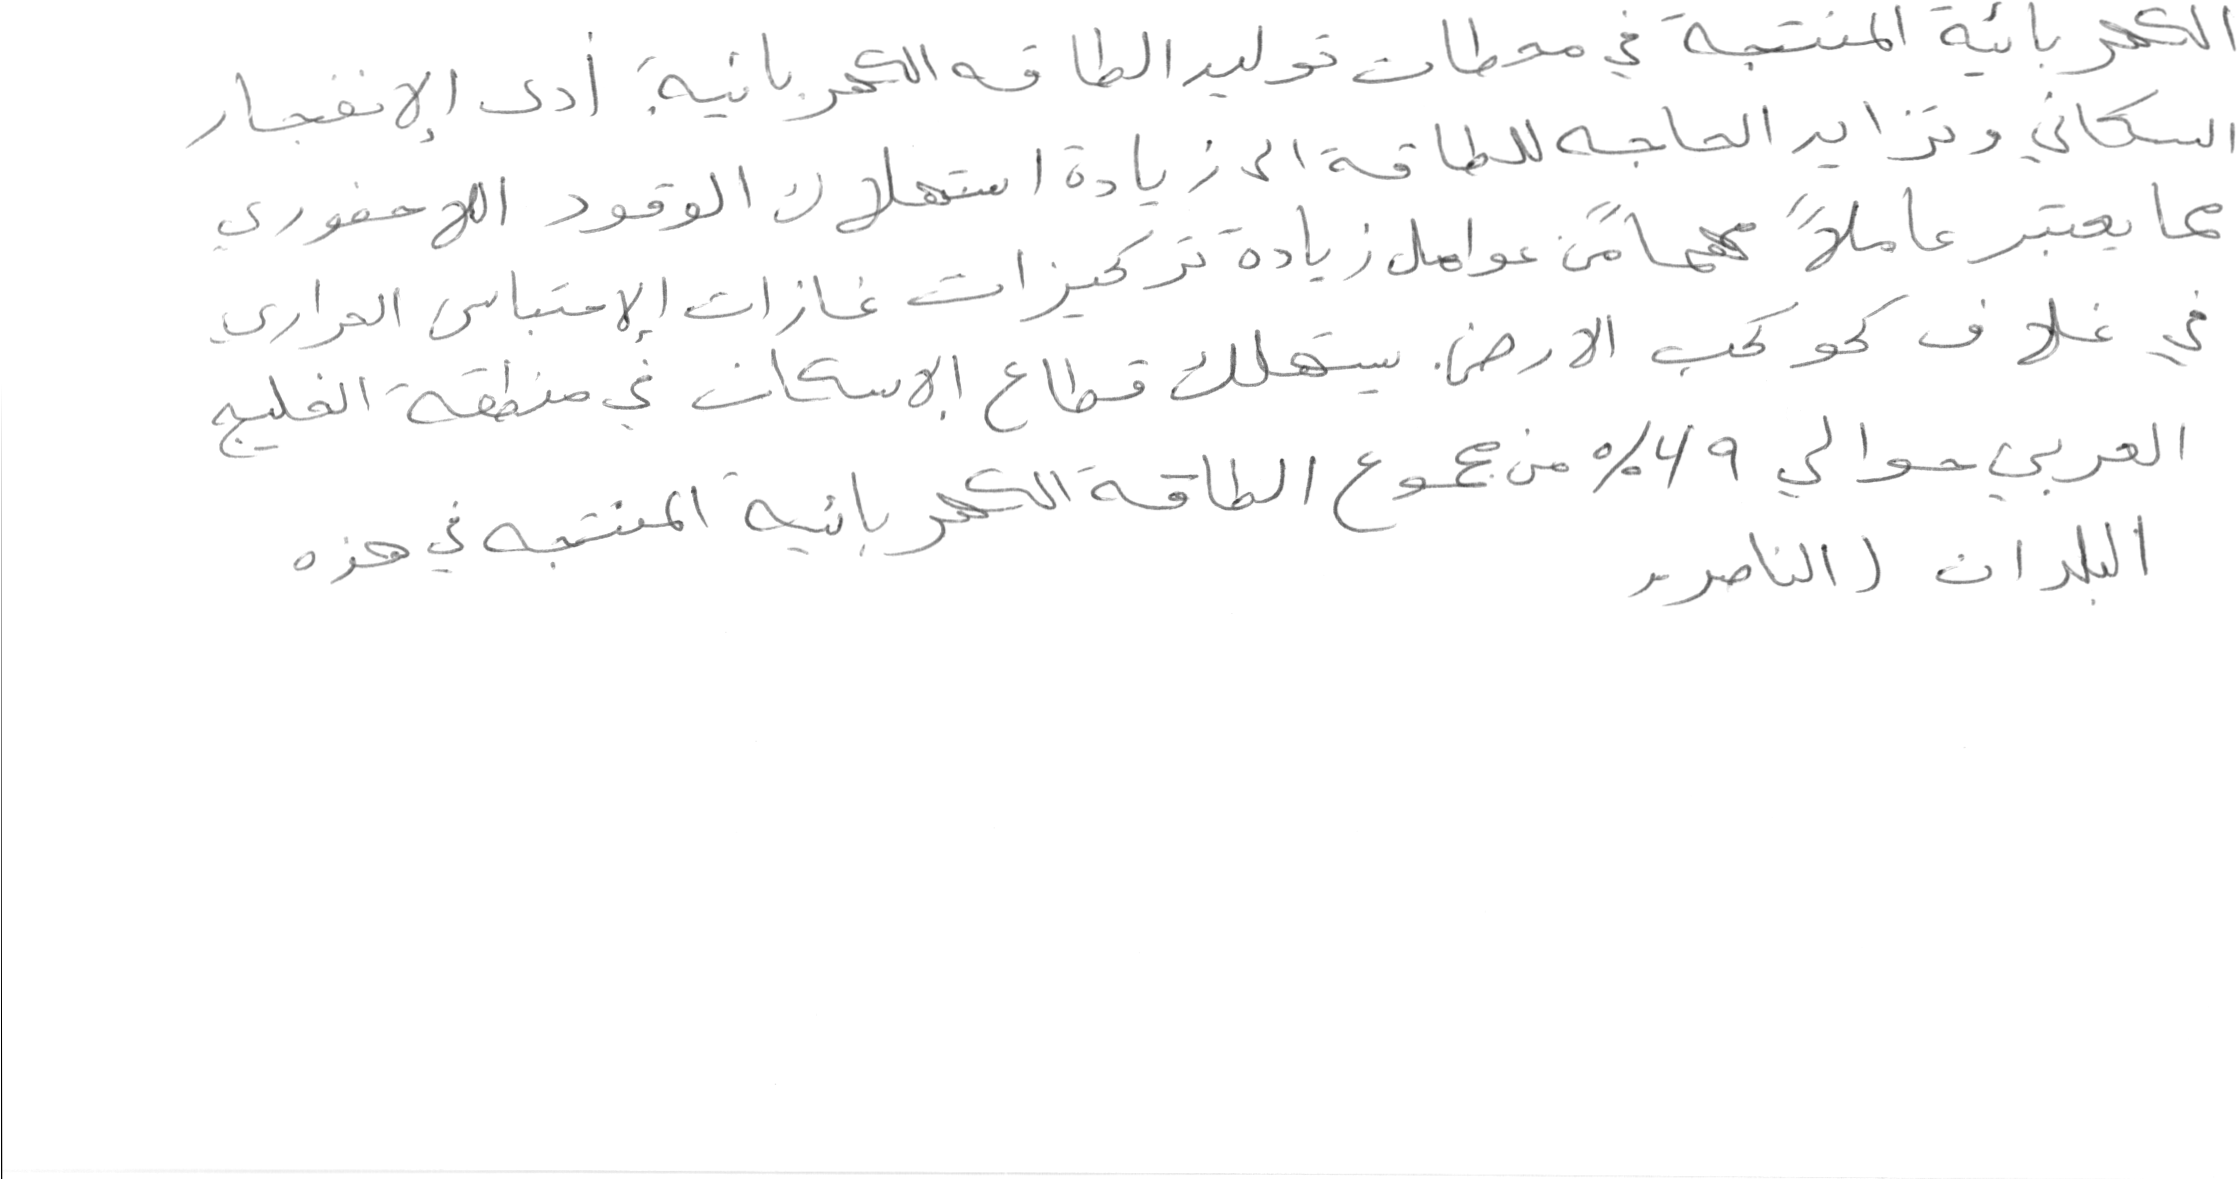 الكهربائية المنتجة في محطات توليد الطاقه الكهربائية. أدى الإنفجار
السكاني وتزايد الحاجه للطاقة الى زيادة استهلاك الوقود الاحفوري
مما يعتبر عاملاً مهماً من عوامل زيادة تركيزات غازات الإحتباس الحراري
في غلاف كوكب الارض. يستهلك قطاع الاسكان في منطقة الخليج
العربي حوالي ٤٩٪ من مجموع الطاقة الكهربائية المنتجه في هذه
البلدان (الناصر